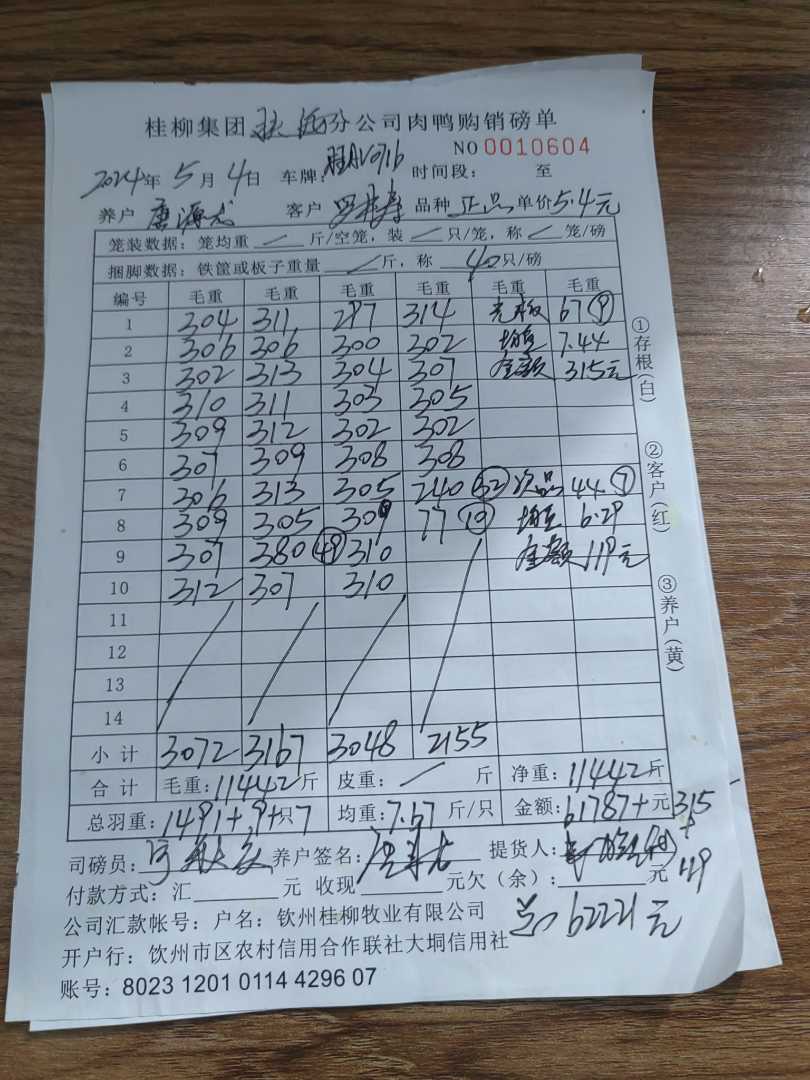 桂柳集团 分公司肉鸭购销磅单
NO 0010604
2024年 5月 4日 车牌: 时间段: 至
养户 唐源龙 客户 品种 正品 单价 5.4元
笼装数据: 笼均重 / 斤/空笼, 装 / 只/笼, 称 / 笼/磅
捆脚数据: 铁筐或板子重量 / 斤, 称 40 只/磅
编号 毛重 毛重 毛重 毛重 毛重 毛重
1 304 311 297 314 光板 67 ⑨
2 306 306 300 302 均重 7.44
3 302 313 304 307 金额 315元
4 310 311 303 305
5 309 312 302 302
6 307 309 308 308
7 306 313 305 240 ㉜ 次品 44 ⑦
8 309 305 309 77 ⑩ 均重 6.29
9 307 380 ㊾ 310 金额 119元
10 312 307 310
11
12
13
14
小计 3072 3167 3048 2155
合计 毛重: 11442斤 皮重: / 斤 净重: 11442斤
总羽重: 1491+9+只7 均重: 7.67 斤/只 金额: 61787+元315
+
119
司磅员: 养户签名: 提货人:
付款方式: 汇 元 收现 元欠(余): 元
公司汇款帐号: 户名: 钦州桂柳牧业有限公司
总 62221元
开户行: 钦州市区农村信用合作联社大垌信用社
账号: 8023 1201 0114 4296 07
①存根(白)
②客户(红)
③养户(黄)